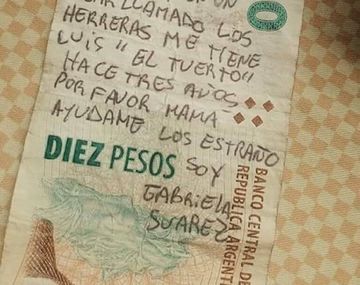 UN
LLAMADO LOS
HERRERAS ME TIENE
LUIS "EL TUERTO"
HACE TRES AÑOS
POR FAVOR MAMA
AYUDAME LOS ESTRAÑO
SOY
GABRIELA
SUAREZ
DIEZ PESOS
BANCO CENTRAL DE
REPUBLICA ARGENT
0